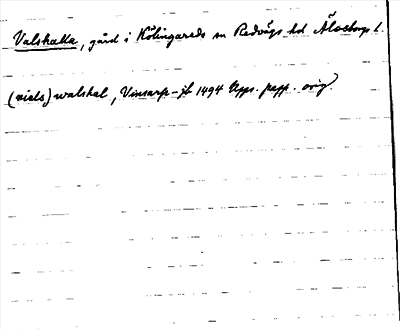 Valskalla, gård i Kölingareds sn Redvägs hd Älvsborgs l.
(niels) walskal, Vinsarp-jb 1494 Upps. papp. orig.